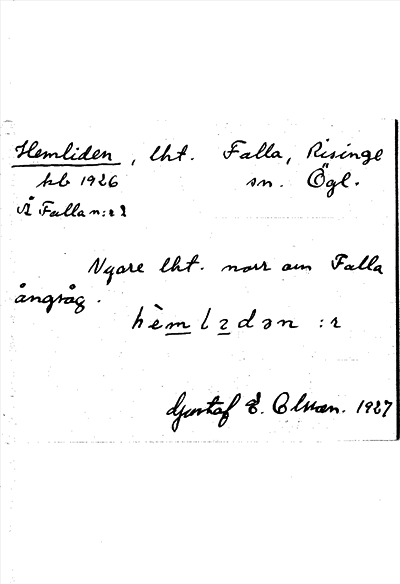 Hemliden, lht. Falla, Risinge
kb 1926 sn. Ögl.
Å Falla n:r 2
Nyare lht. norr om Falla
ångsåg.
hèmlꞮdən :r
Gustaf E. Olsson. 1927